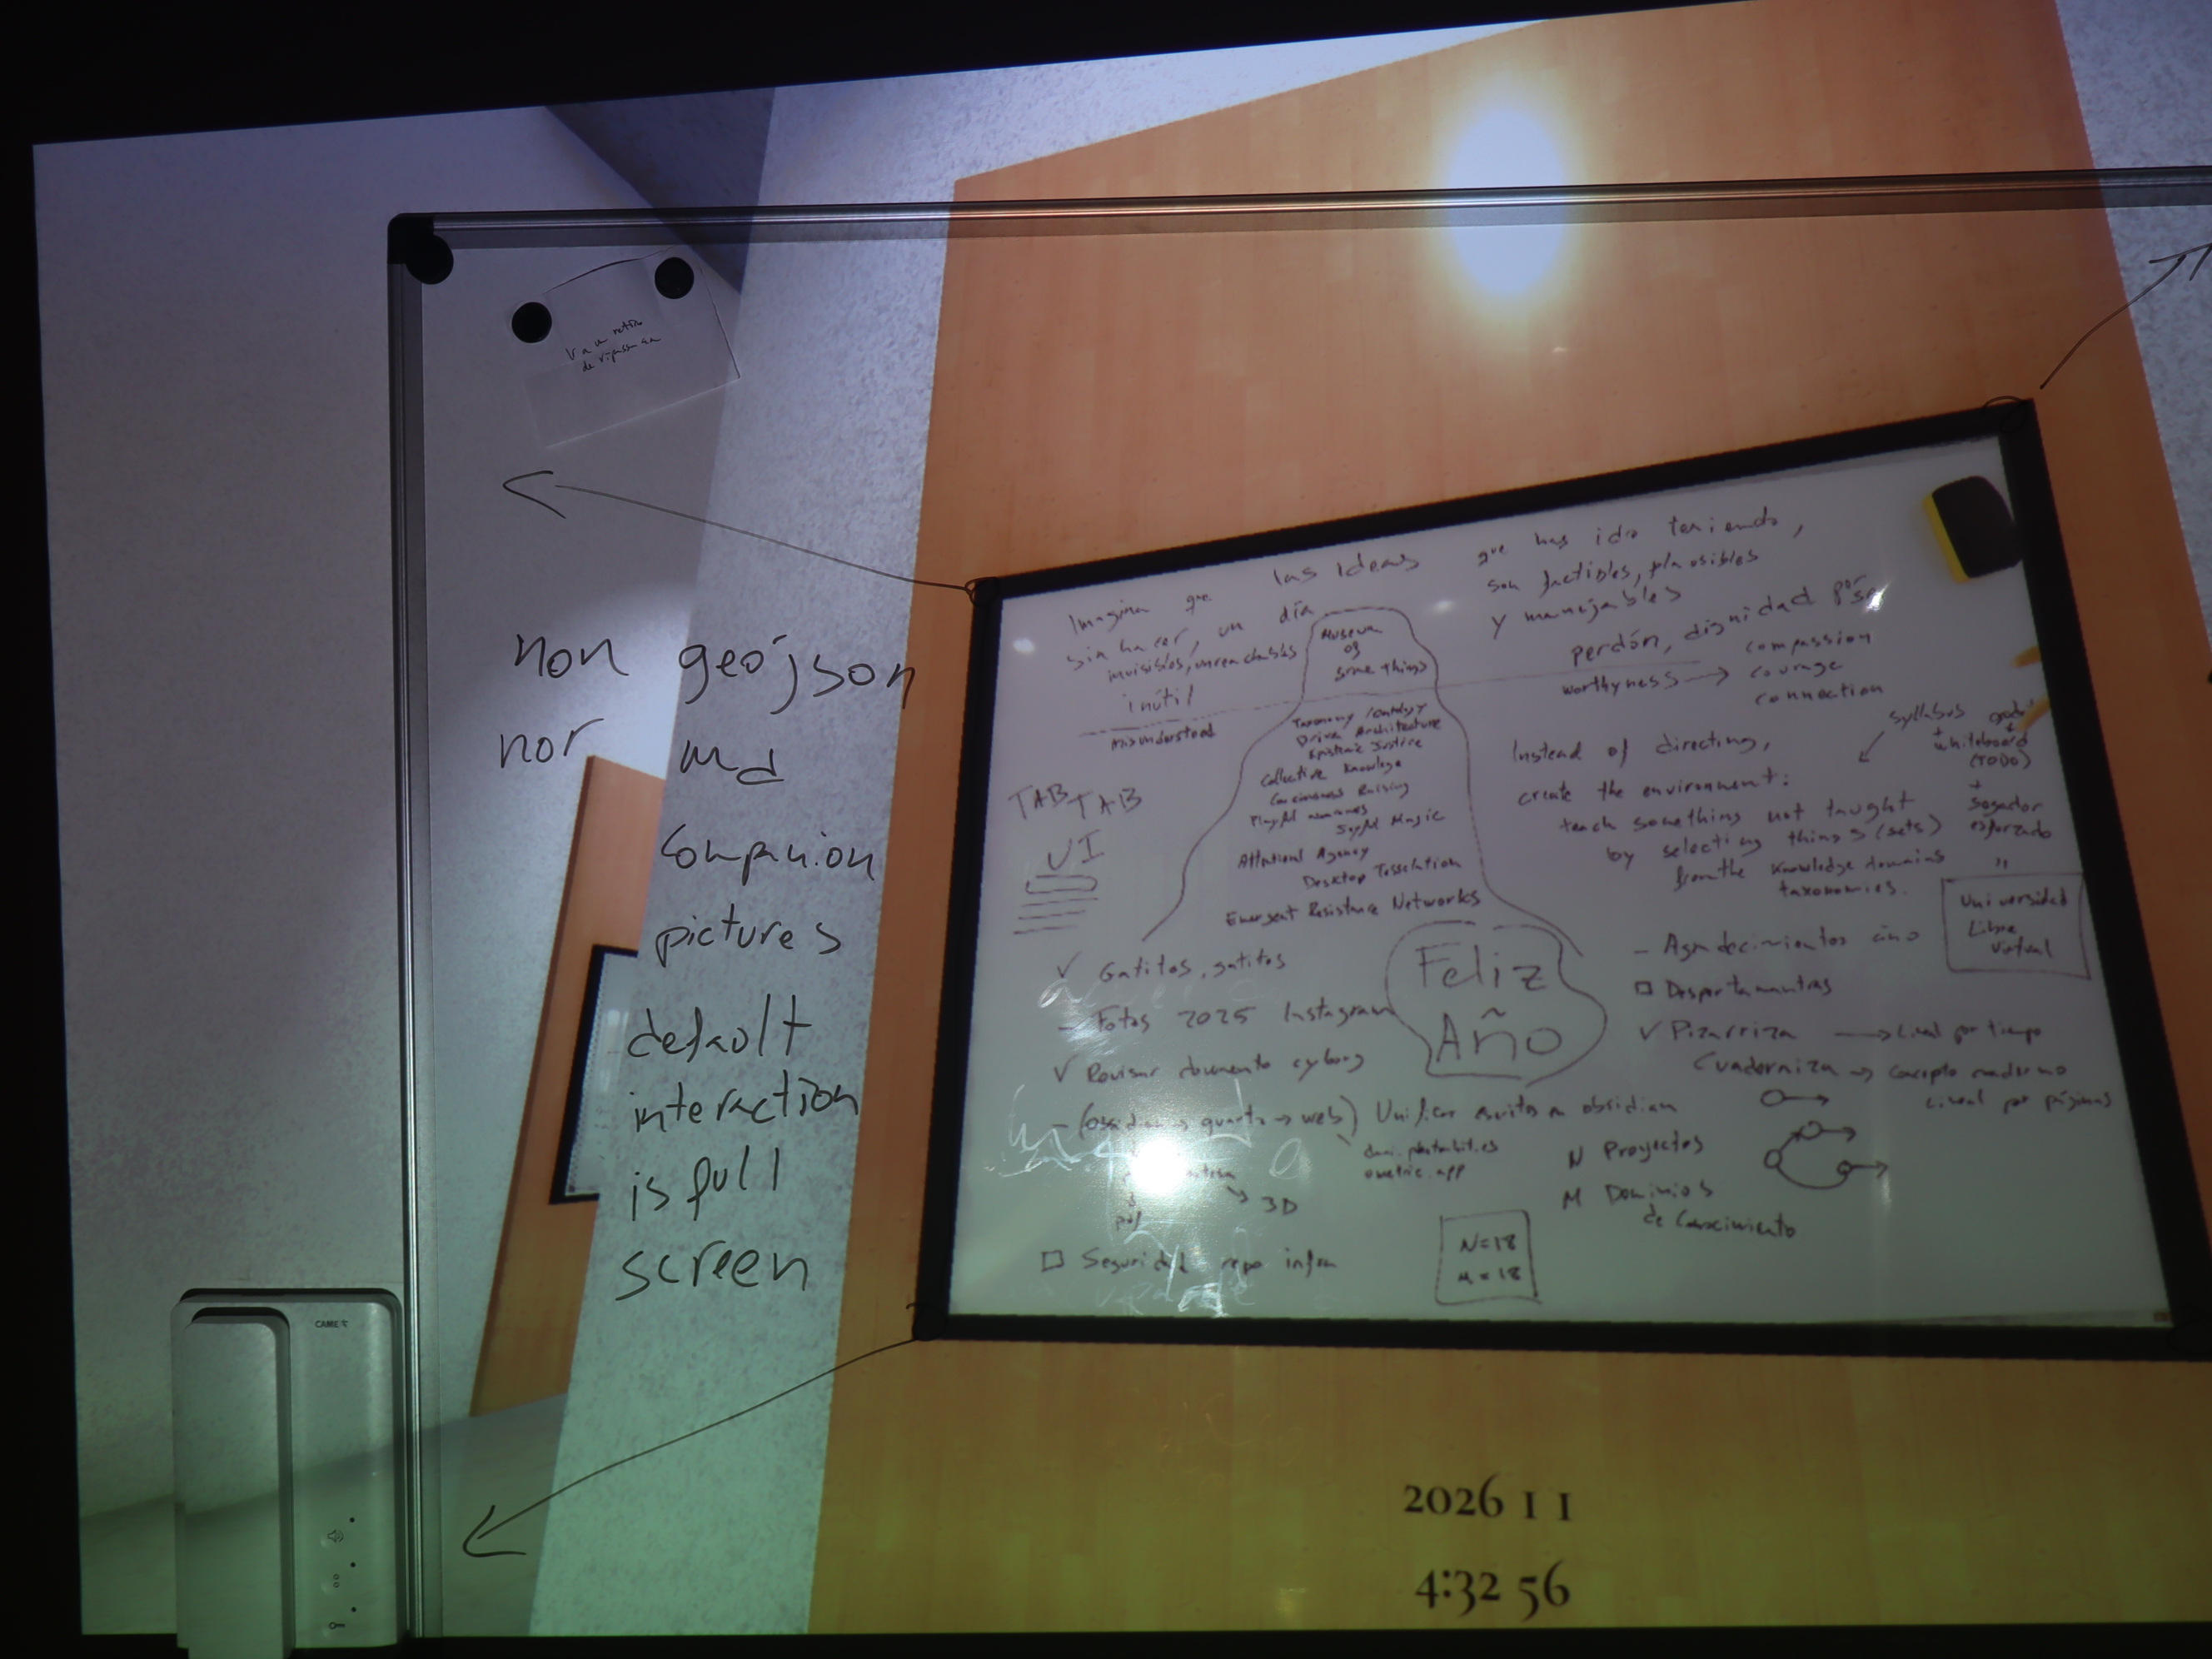 non geojson
nor md
companion
pictures
default
interaction
is full
screen
CAME
Imagina que las ideas que has ido teniendo,
sin hacer, un día son factibles, plausibles
invisibles, unreachables y manejables
inútil
misunderstood
perdón, dignidad
worthyness → compassion
courage
connection
Museum
of
some things
Taxonomy / Ontology
Driven Architecture
Epistemic Justice
Collective Knowledge
Consciousness Raising
Playful
Joyful Magic
Attentional Agency
Desktop Tessellation
Emergent Resistance Networks
TAB TAB
UI
Instead of directing,
create the environment:
teach something not taught
by selecting things (sets)
from the Knowledge domains
taxonomies.
syllabus
+
whiteboard
(TODO)
+
segador
esforzado
Universidad
Libre
Virtual
Feliz
Año
✓ Gatitos, gatitos
- Fotos 2025 Instagram
✓ Revisar documento cyborg
- (obsidian → quarto → web) Unificar escritos en obsidian
→ 3D
pdf
□ Seguridad repo infra
- Agradecimientos
□ Despertamantras
✓ Pizarriza → Lineal por tiempo
Cuaderniza → concepto moderno
Lineal por páginas
N Proyectos
M Dominios
de Conocimiento
N=18
M=18
2026 1 1
4:32 56